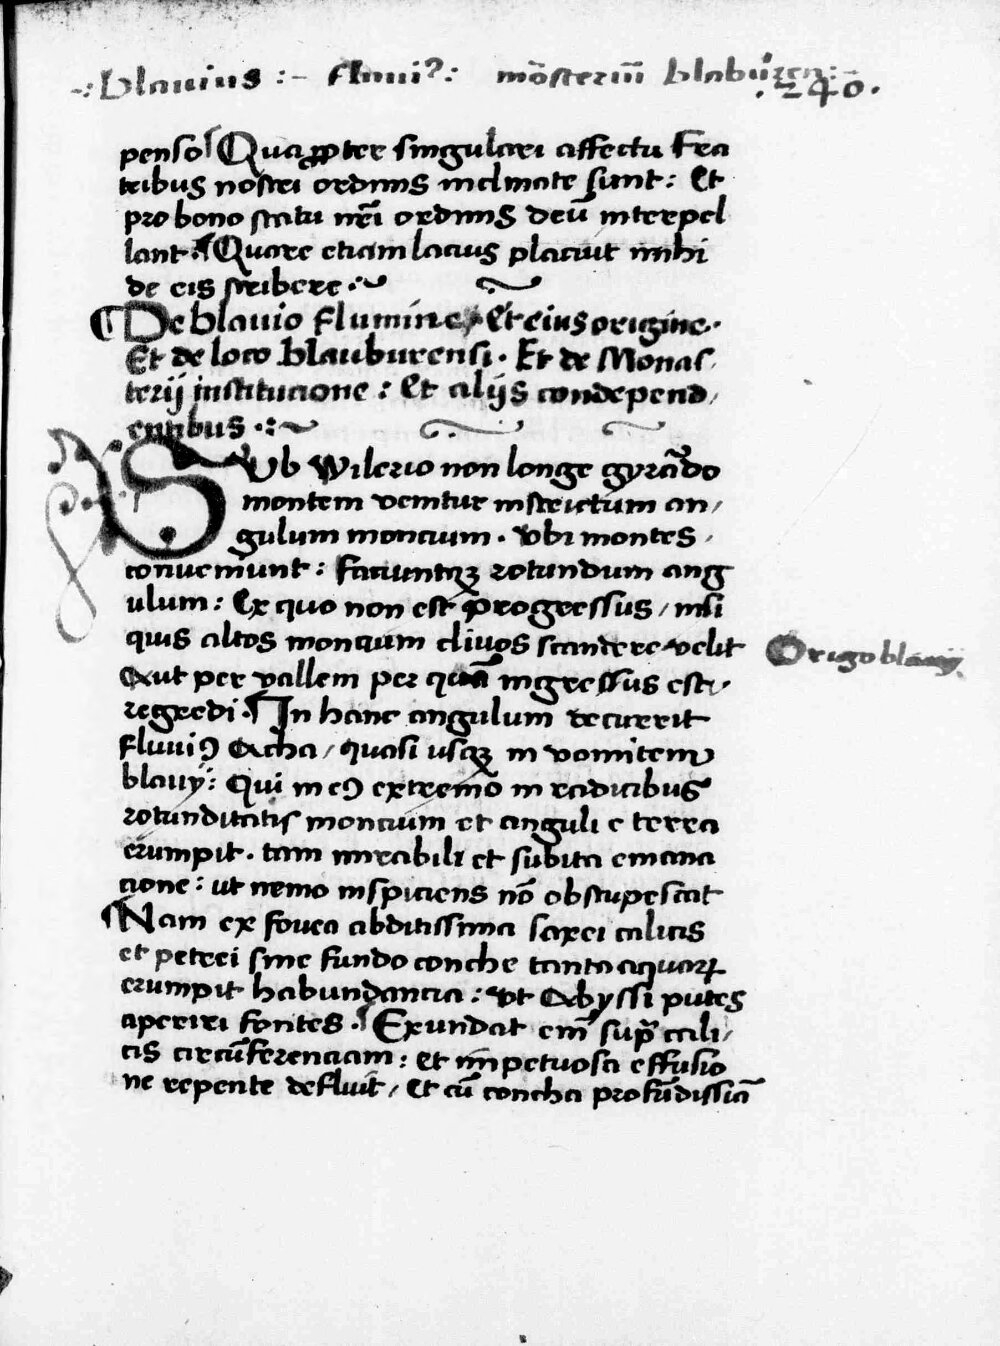 -:Blauius :- fluui⁹: mōsteriū blabúren:
.240.
penso ¶ Quaꝓpter singulari affectu Fra
tribus nostri ordinis inclinate sunt: Et
pro bono statu nr̄i ordinis deū interpel
lant. ¶ Quare etiam lacius placuit mihi
de eis scribere .~
¶ De blauio flumine, Et eius origine.
Et de loco blauburensi. Et de Monas,
terij institucione: Et alijs condepend,
entibus .:~
SVb Wilerio non longe gyrādo
montem venitur in strictum an,
gulum moncium. vbi montes,
conueniunt: faciuntqꝫ rotundum ang
ulum: Ex quo non est progressus, nisi
quis altos moncium cliuos scandere velit
Origo blauij
Aut per vallem per quā ingressus est,
regredi. ¶ In hanc angulum decurrit
fluui⁹ Acha, quasi usqꝫ in vomitem
blauij: Qui in ei⁹ extremo in radicibus
rotunditatis moncium et anguli e terra
erumpit. tam mirabili et subita emana
cione: ut nemo inspiciens nō obstupescat
¶ Nam ex fouea abditissima saxei calicis
et petrei sine fundo conche tanta aquarꝝ
erumpit habundancia: vt Abyssi putes
aperiri fontes. ¶ Exundat em̄ supͣ cali,
cis circūferenciam: et impetuosa effusio
ne repente defluit, Et cū concha profūdissiā